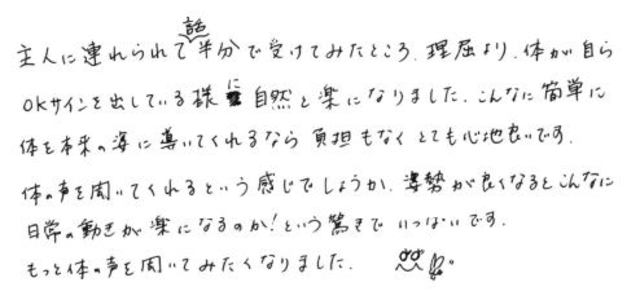 主人に連れられて話半分で受けてみたところ、理屈より、体が自ら
OKサインを出している様に自然と楽になりました。こんなに簡単に
体を本来の姿に導いてくれるなら負担もなくとても心地良いです。
体の声を聞いてくれるという感じでしょうか。姿勢が良くなるとこんなに
日常の動きが楽になるのか!という驚きでいっぱいです。
もっと体の声を聞いてみたくなりました。